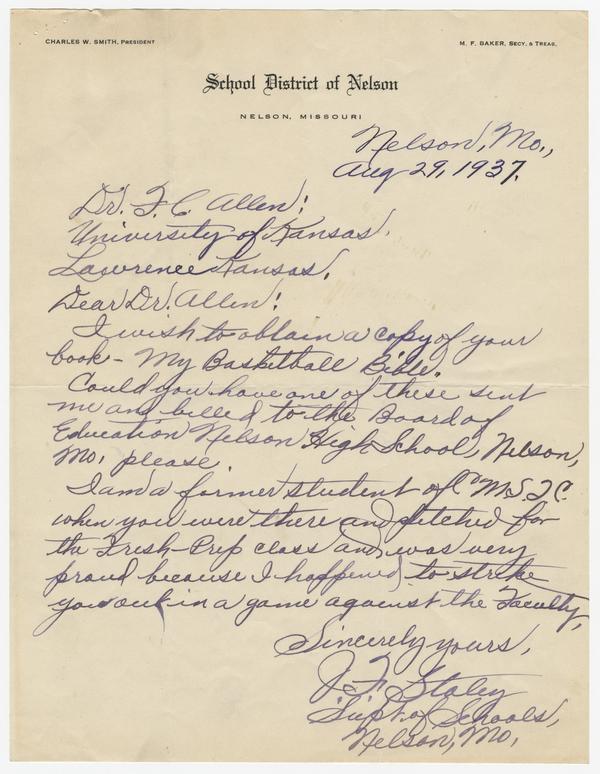 CHARLES W. SMITH, PRESIDENT
M. F. BAKER, SECY. & TREAS.
School District of Nelson
NELSON, MISSOURI
Nelson, Mo.,
Aug 29, 1937.
Dr. F. C. Allen:
University of Kansas.
Lawrence Kansas.
Dear Dr. Allen:
I wish to obtain a copy of your
book - My Basketball Bible.
Could you have one of these sent
me and billed to the Board of
Education Nelson High School, Nelson,
Mo. please.
I am a former student of C. M. S. T. C.
when you were there and pitched for
the Fresh-Prep class and was very
proud because I happened to strike
you out in a game against the Faculty,
Sincerely yours,
J. F. Staley
Supt. of Schools,
Nelson, Mo.